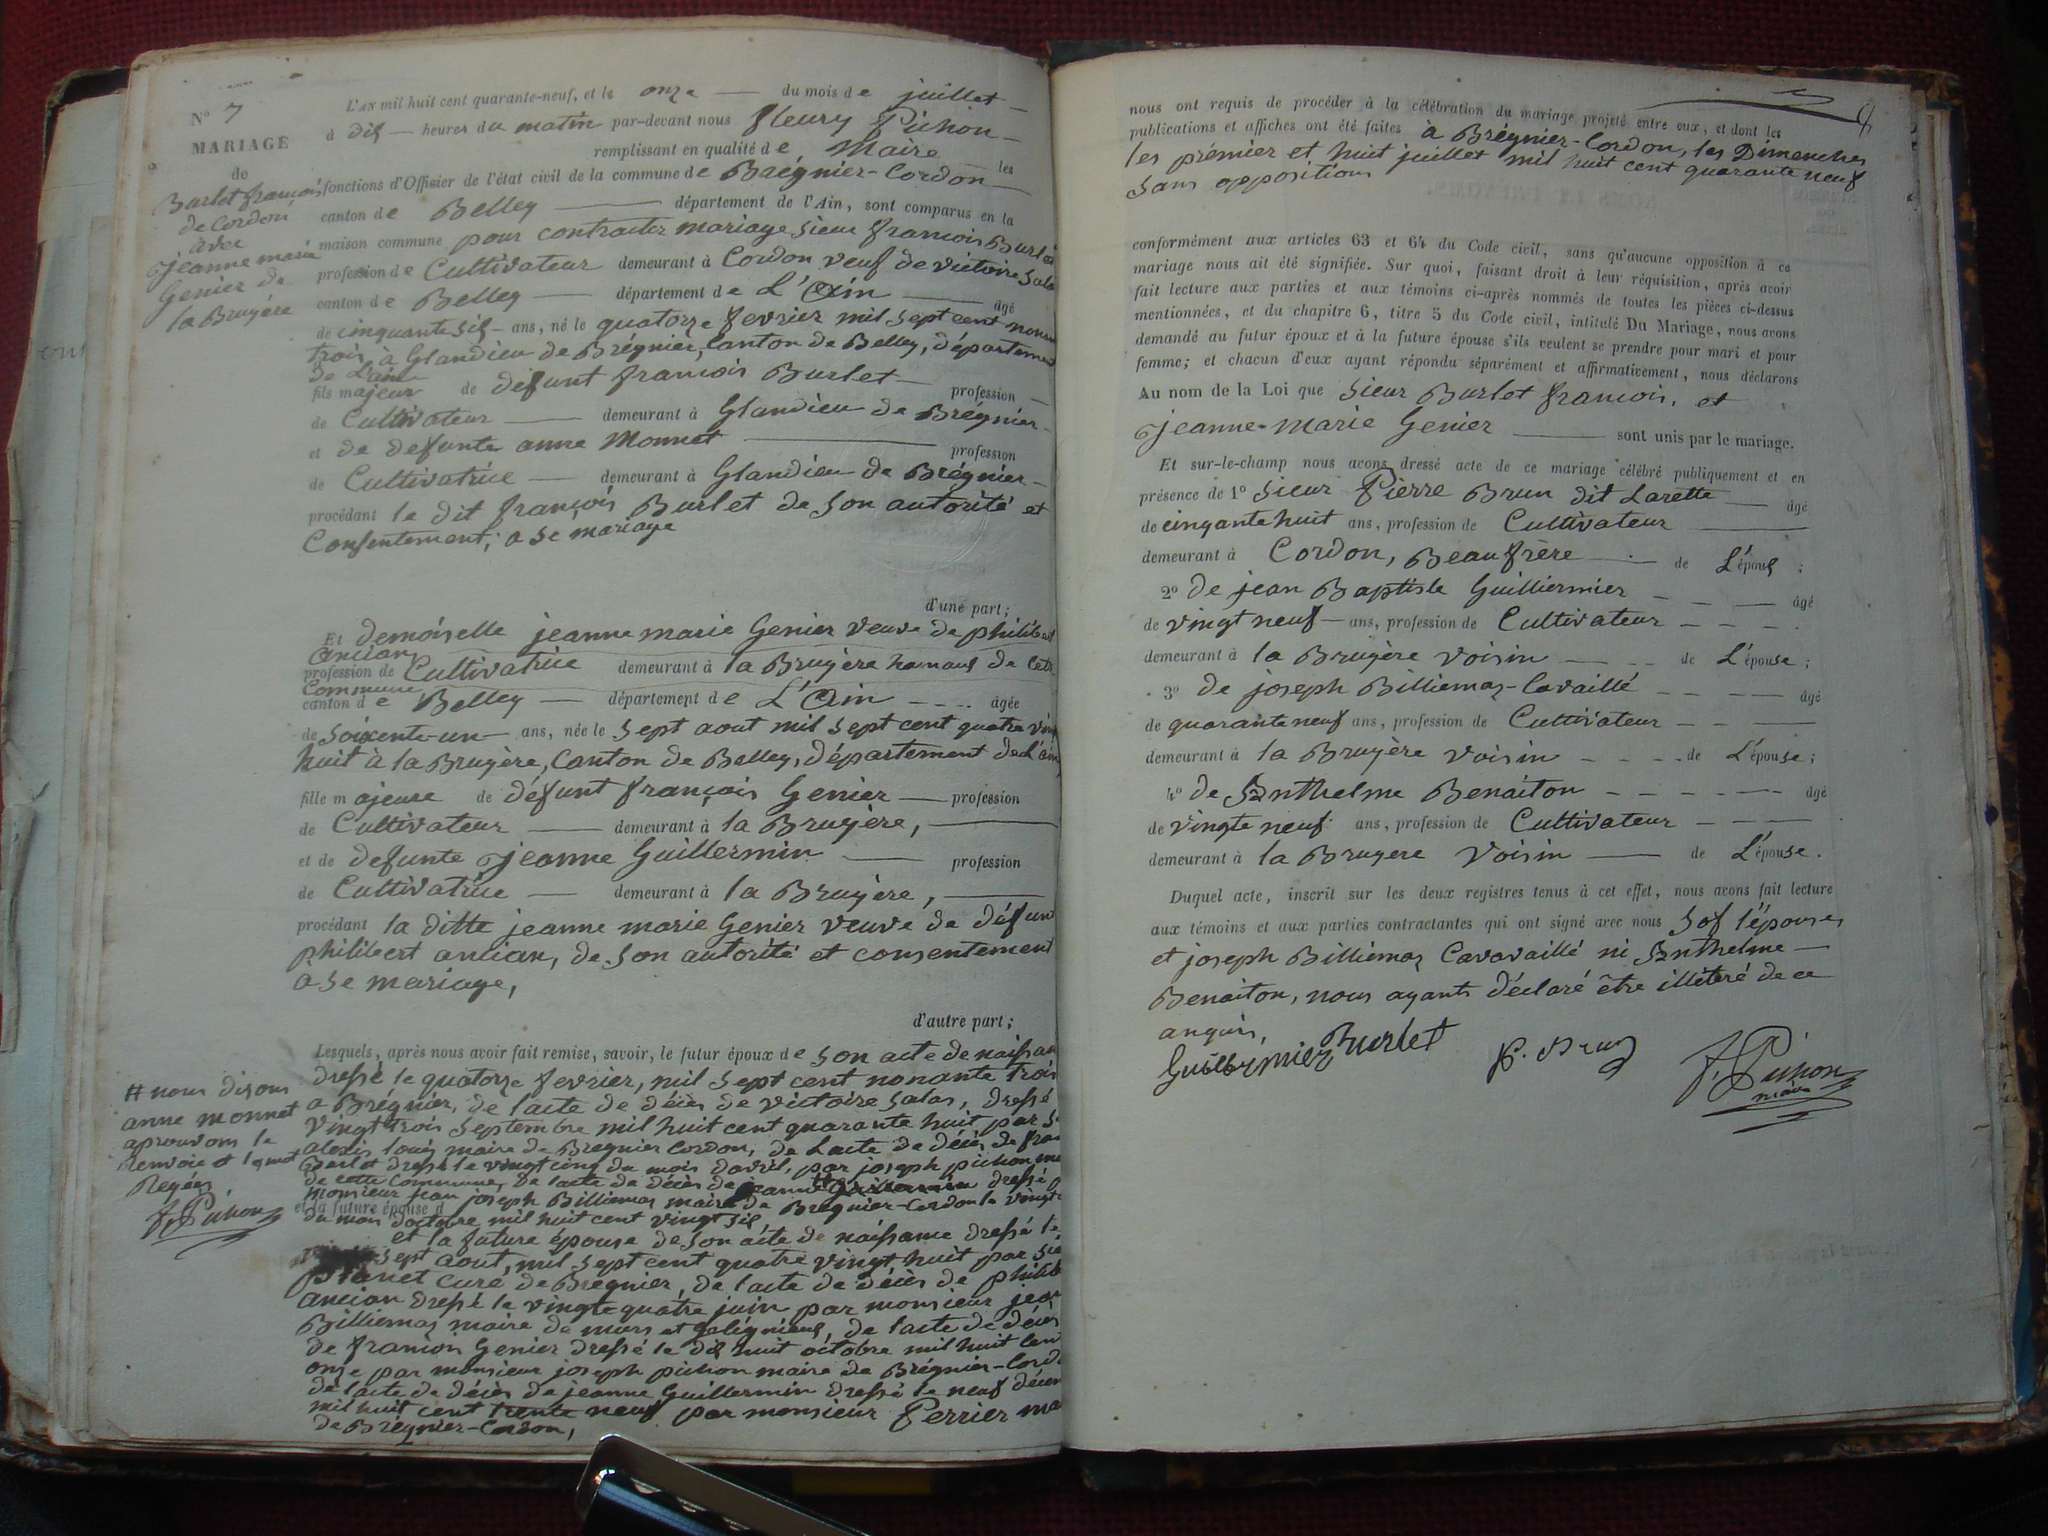 N° 7
MARIAGE
de
Burlet françois
de Cordon
avec
jeanne marie
Genier de
la Bruyère
L'AN mil huit cent quarante-neuf, et le onze du mois de juillet
à dix heures du matin par-devant nous fleury Pichon
remplissant en qualité de Maire les
fonctions d'Officier de l'état civil de la commune de Brégnier-Cordon
canton de Belley département de l'Ain, sont comparus en la
maison commune pour contracter mariage sieur francois Burlet
profession de Cultivateur demeurant à Cordon veuf de victoire Salas
canton de Belley département de L'Ain âgé
de cinquante six ans, né le quatorze fevrier mil sept cent nonante
trois à Glandieu de Brégnier, Canton de Belley, département
de L'ain
fils majeur de défunt francois Burlet profession
de Cultivateur demeurant à Glandieu de Brégnier
et de defunte anne Monnet profession
de Cultivatrice demeurant à Glandieu de Brégnier
procédant le dit françois Burlet de son autorité et
Consentement, a se mariage
d'une part;
Et demoiselle jeanne marie Genier veuve de philibert
ancian
profession de Cultivatrice demeurant à la Bruyère hamaux de cette
Commune
canton de Belley département de L'Ain âgée
de soixente-un ans, née le sept aout mil sept cent quatre vingt
huit à la Bruyère, Canton de Belley, département de L'ain
fille majeure de défunt françois Genier profession
de Cultivateur demeurant à la Bruyère,
et de defunte jeanne Guillermin profession
de Cultivatrice demeurant à la Bruyère,
procédant la ditte jeanne marie Genier veuve de défunt
philibert ancian, de son autorité et consentement
a se mariage,
d'autre part;
Lesquels, après nous avoir fait remise, savoir, le futur époux de son acte de naissance
dressé le quatorze fevrier, mil sept cent nonante trois
a Brégnier, de l'acte de décès de victoire Salas, dressé
vingt trois septembre mil huit cent quarante huit par
alexis louis maire de Bregnier Cordon, de l'acte de décès de
Burlet dressé le vingt cinq du mois davril, par joseph pichon
de cette Commune, de lacte de décès de jeanne Guillermin dressé
Monsieur jean joseph Billiemas maire de Bregnier-Cordon le vingt
et la future épouse d
du mois doctobre mil huit cent vingt six,
et la future épouse de son acte de naissance dressé le
sept aout, mil sept cent quatre vingt huit par
planet curé de Bregnier, de l'acte de décès de philibert
ancian dressé le vingte quatre juin par monsieur jean
Billiemas maire de murs et gelignieux, de l'acte de décès
de francois Genier dressé le dix huit octobre mil huit cent
onze par monsieur joseph pichon maire de Brégnier-Cordon
de l'acte de décès de jeanne Guillermin dressé le neuf décembre
mil huit cent trente neuf par monsieur Perrier maire
de Brégnier-Cordon,
# nous disons
anne monnet
aprouvons le
Renvoie et le mot
Reyées
f. Pichon
nous ont requis de procéder à la célébration du mariage projeté entre eux, et dont les
publications et affiches ont été faites à Brégnier-Cordon, les Dimenches
les prémier et huit juillet mil huit cent quarante neuf
sans opposition
conformément aux articles 63 et 64 du Code civil, sans qu'aucune opposition à ce
mariage nous ait été signifiée. Sur quoi, faisant droit à leur réquisition, après avoir
fait lecture aux parties et aux témoins ci-après nommés de toutes les pièces ci-dessus
mentionnées, et du chapitre 6, titre 5 du Code civil, intitulé Du Mariage, nous avons
demandé au futur époux et à la future épouse s'ils veulent se prendre pour mari et pour
femme; et chacun d'eux ayant répondu séparément et affirmativement, nous déclarons
Au nom de la Loi que sieur Burlet francois, et
jeanne-marie Genier sont unis par le mariage.
Et sur-le-champ nous avons dressé acte de ce mariage célébré publiquement et en
présence de 1° sieur Pierre Brun dit Larette âgé
de cinqantehuit ans, profession de Cultivateur
demeurant à Cordon, Beaufrère de L'époux;
2° de jean Baptiste Guilliermier âgé
de vingt neuf ans, profession de Cultivateur
demeurant à la Bruyère voisin de L'épouse;
3° de joseph Billiemaz-Cavaillé âgé
de quaranteneuf ans, profession de Cultivateur
demeurant à la Bruyère voisin de L'épouse;
4° de Anthelme Benaiton âgé
de vingte neuf ans, profession de Cultivateur
demeurant à la Bruyere voisin de L'épouse.
Duquel acte, inscrit sur les deux registres tenus à cet effet, nous avons fait lecture
aux témoins et aux parties contractantes qui ont signé avec nous sof l'épouse,
et joseph Billiemaz Cavavaillé ni Anthelme
Benaiton, nous ayants déclaré être illéteré de ce
anquis,
Guilliermier Burlet P. Brun f. Pichon
maire